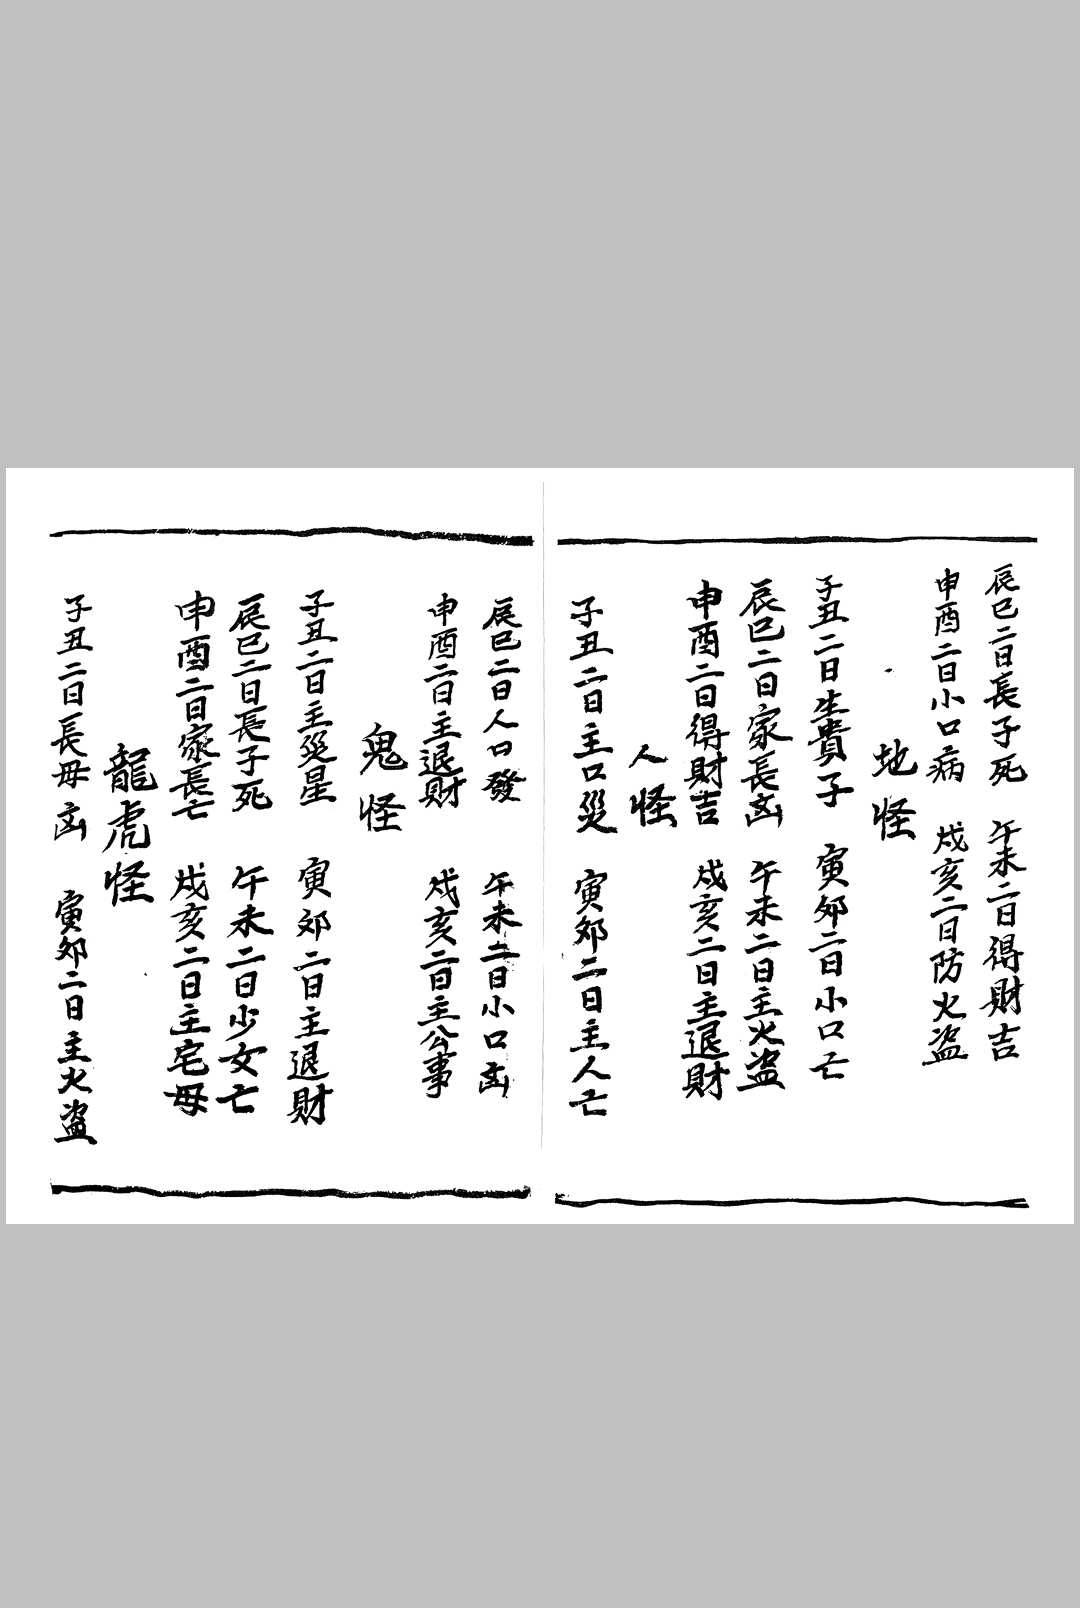 辰巳二日長子死　午未二日得財吉
申酉二日小口病　戌亥二日防火盗
地怪
子丑二日生貴子　寅卯二日小口亡
辰巳二日家長凶　午未二日主火盗
申酉二日得財吉　戌亥二日主退財
人怪
子丑二日主口災　寅卯二日主人亡
辰巳二日人口發　午未二日小口凶
申酉二日主退財　戌亥二日主公事
鬼怪
子丑二日主災星　寅卯二日主退財
辰巳二日長子死　午未二日少女亡
申酉二日家長亡　戌亥二日主宅母
龍虎怪
子丑二日長母凶　寅卯二日主火盗